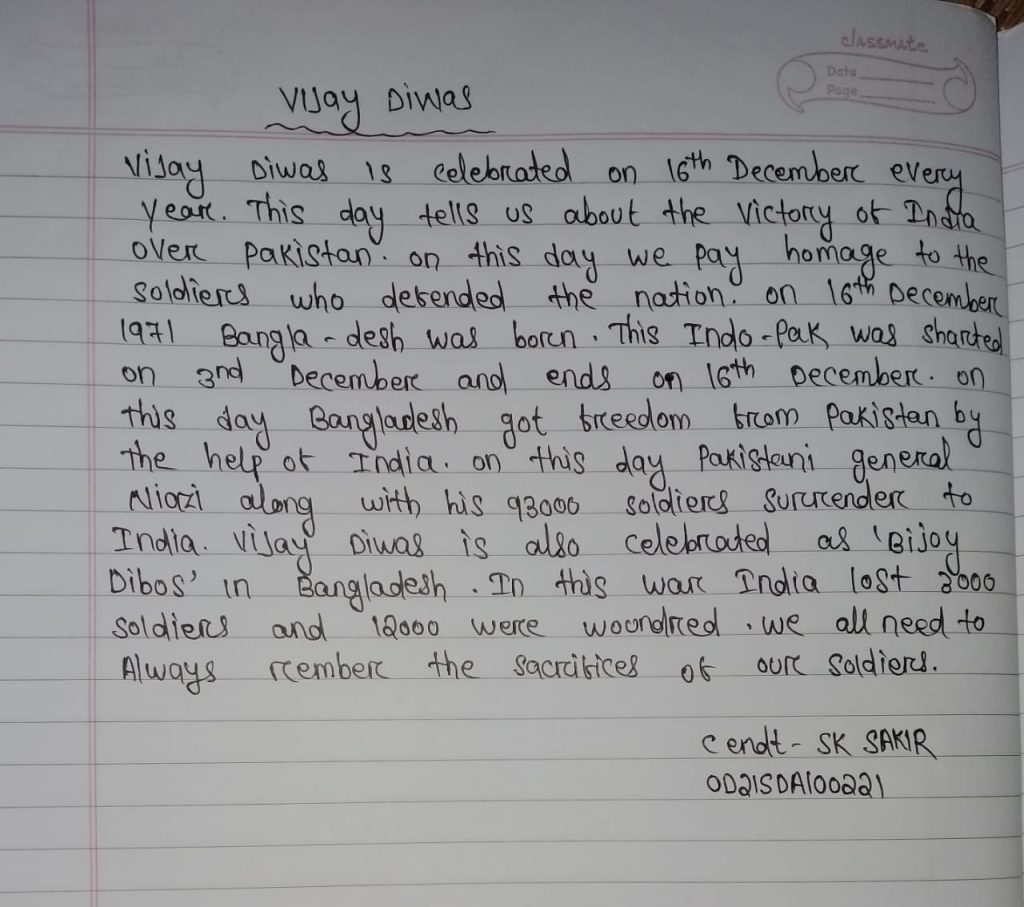 classmate
Date
Page
Vijay Diwas
Vijay Diwas is celebrated on 16th December every
Year. This day tells us about the victory of India
over Pakistan. on this day we pay homage to the
soldiers who defended the nation. on 16th December
1971 Bangla-desh was born. This Indo-Pak was sharted
on 3nd December and ends on 16th December. on
this day Bangladesh got freedom from Pakistan by
the help of India. on this day Pakistani general
Niazi along with his 93000 soldiers surrender to
India. Vijay Diwas is also celebrated as 'Bijoy
Dibos' in Bangladesh. In this war India lost 3000
soldiers and 12000 were woundred. we all need to
Always rember the sacrifices of our soldiers.
Cendt- SK SAKIR
OD21SDA100221